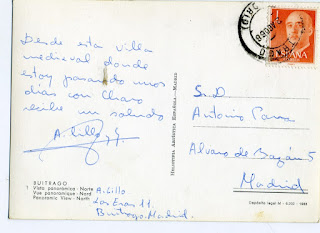 Desde esta villa
medieval donde
estoy pasando unos
días con Charo
recibe un saludo
A. Lillo
BUITRAGO
1 Vista panorámica - Norte
Vue panoramique - Nord
Panoramic View - North
A. Lillo
Las Eras 11.
Buitrago. Madrid.
HELIOTIPIA ARTÍSTICA ESPAÑOLA - MADRID
ESPAÑA
S.D
Antonio Parra
Alvaro de Bazán 5
Madrid
Depósito legal M